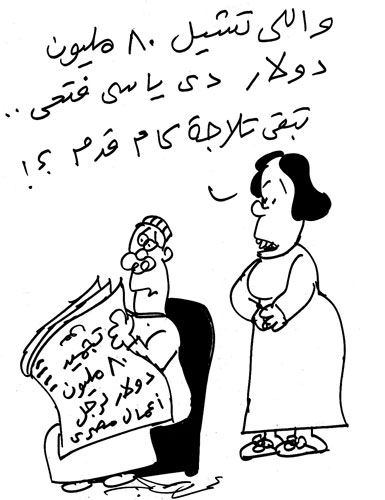 واللى تشيل ٨٠ مليون
دولار دى ياسى فتحى ..
تبقى تلاجة كام قدم ؟!
تجميد
٨٠ مليون
دولار لرجل
أعمال مصرى